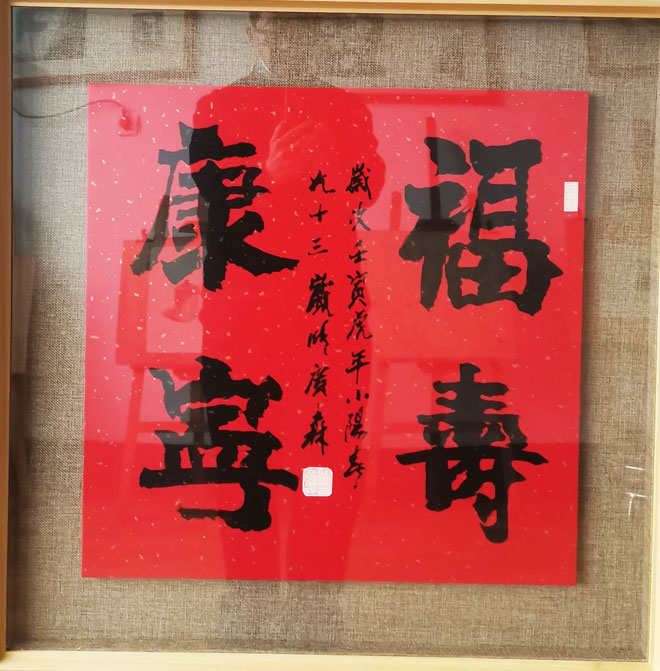 福壽
康寧
歲次壬寅虎年小陽春
九十三歲叟廣森